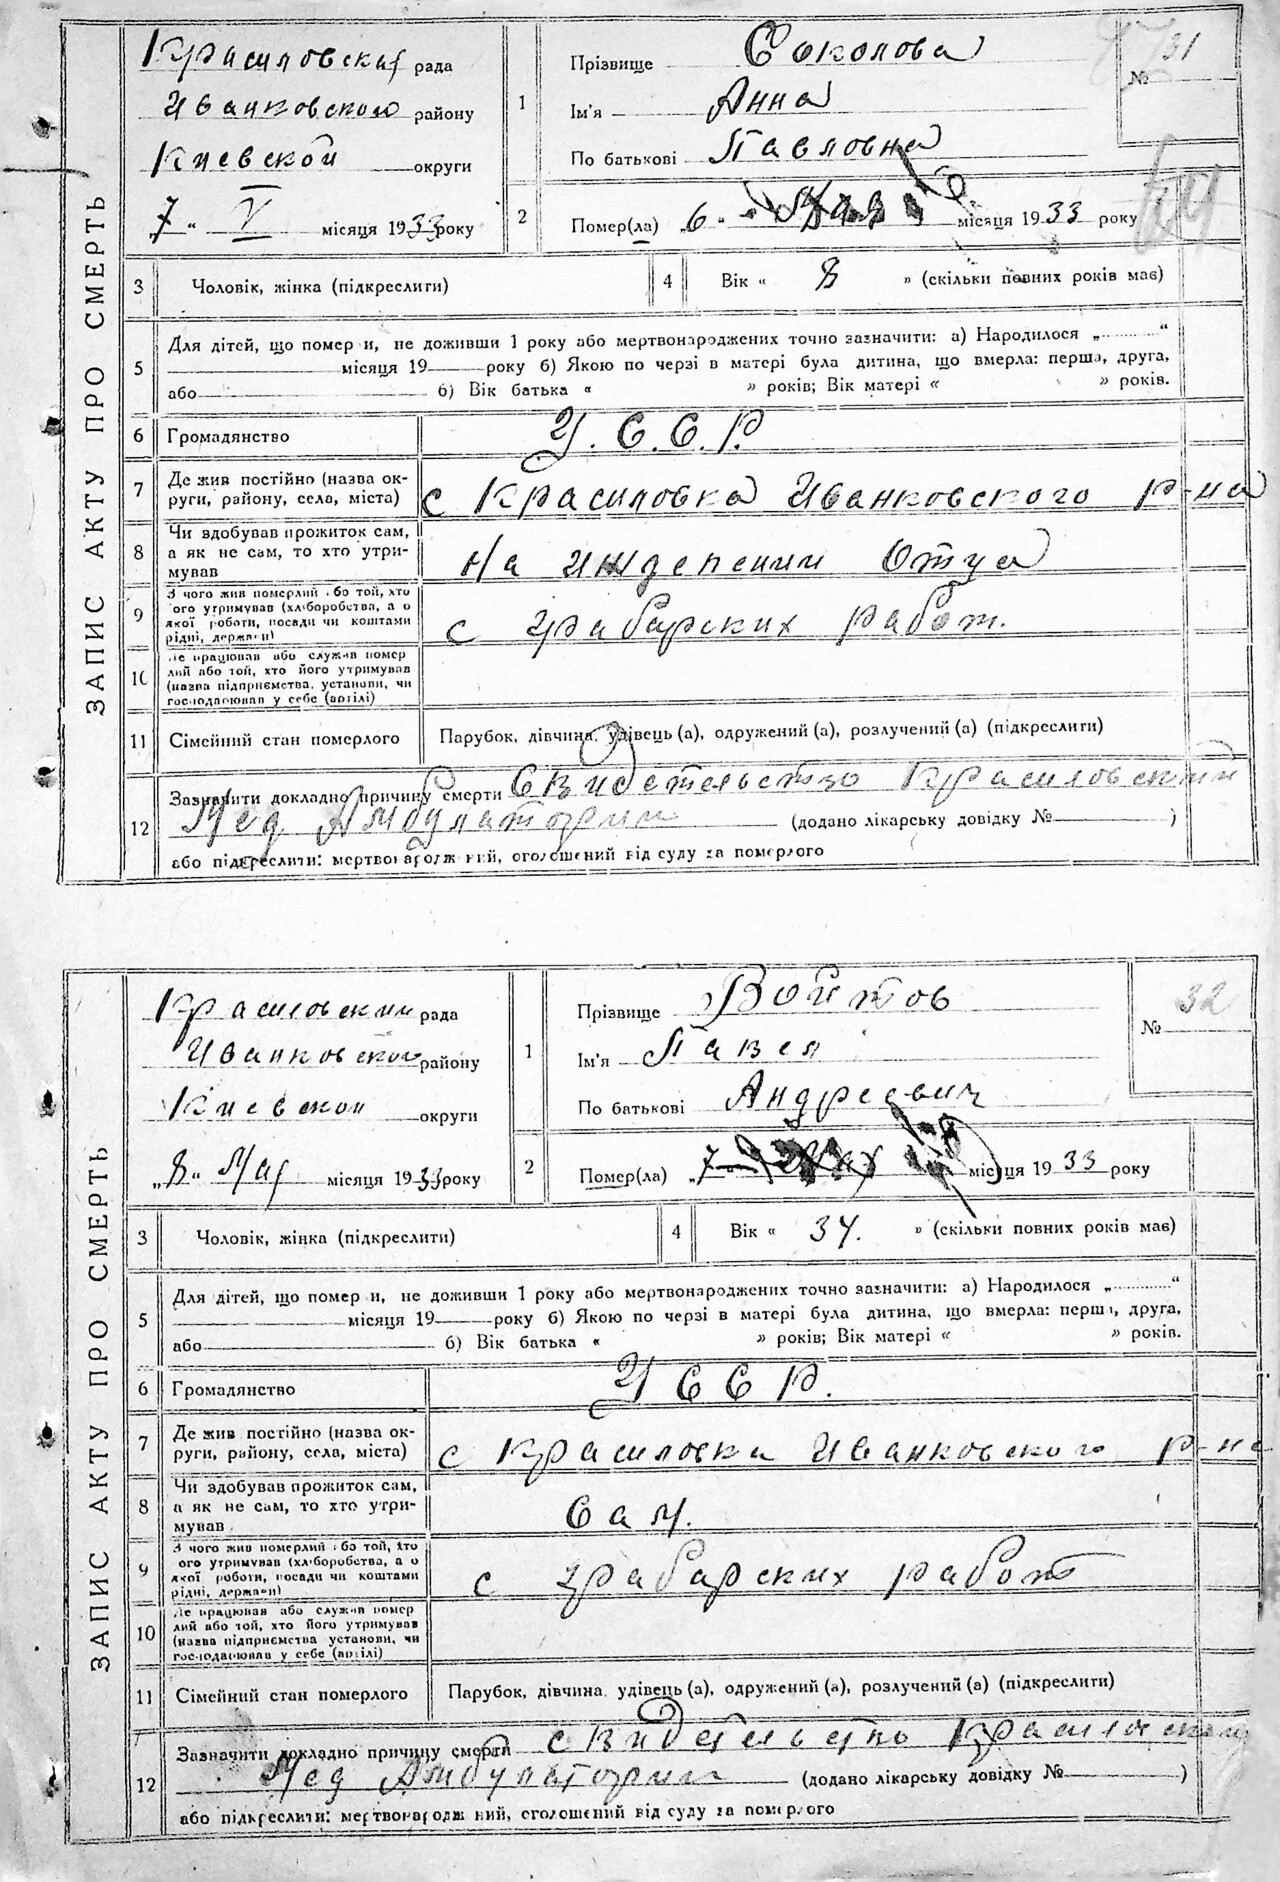 ЗАПИС АКТУ ПРО СМЕРТЬ
Красиловская рада
Иванковского району
Киевской округи
7 " V місяця 1933 року
1
Прізвище Соколова
Ім'я Анна
По батькові Павловна
№ 31
2
Помер(ла) "6 " місяця 1933 року
3
Чоловік, жінка (підкреслити)
4
Вік « 8 » (скільки повних років має)
5
Для дітей, що помер и, не доживши 1 року або мертвонароджених точно зазначити: а) Народилося „ “
місяця 19 року б) Якою по черзі в матері була дитина, що вмерла: перша, друга,
або б) Вік батька « » років; Вік матері « » років.
6
Громадянство
У.С.С.Р.
7
Де жив постійно (назва ок-
руги, району, села, міста)
с Красиловка Иванковского р-на
8
Чи здобував прожиток сам,
а як не сам, то хто утри-
мував
На иждепении Отца
9
З чого жив померлий або той, хто
ого утримував (хліборобства, а о
якої роботи, посади чи коштами
рідні, держави)
с грабарских работ.
10
Де працював або служив помер
лий або той, хто його утримував
(назва підприємства, установи, чи
господарював у себе (артілі)
11
Сімейний стан померлого
Парубок, дівчина, удівець (а), одружений (а), розлучений (а) (підкреслити)
12
Зазначити докладно причину смерти Свидетельство Красиловский
Мед Амбулатории (додано лікарську довідку № )
або підкреслити: мертвонародж ний, оголошений від суду за померлого
ЗАПИС АКТУ ПРО СМЕРТЬ
Красиловский рада
Иванковского району
Киевской округи
„8" Мая місяця 1933 року
1
Прізвище Войтов
Ім'я Павел
По батькові Андреевич
№ 32
2
Помер(ла) „7 місяця 1933 року
3
Чоловік, жінка (підкреслити)
4
Вік « 34. » (скільки повних років має)
5
Для дітей, що помер и, не доживши 1 року або мертвонароджених точно зазначити: а) Народилося „ “
місяця 19 року б) Якою по черзі в матері була дитина, що вмерла: перша, друга,
або б) Вік батька « » років; Вік матері « » років.
6
Громадянство
УССР.
7
Де жив постійно (назва ок-
руги, району, села, міста)
с Красиловка Иванковского р-на
8
Чи здобував прожиток сам,
а як не сам, то хто утри-
мував
Сам.
9
З чого жив померлий або той, хто
ого утримував (хліборобства, а о
якої роботи, посади чи коштами
рідні, держави)
с грабарских работ
10
Де працював або служив помер
лий або той, хто його утримував
(назва підприємства установи, чи
господарював у себе (артілі)
11
Сімейний стан померлого
Парубок, дівчина, удівець (а), одружений (а), розлучений (а) (підкреслити)
12
Зазначити докладно причину смерти свидетельство Красиловский
Мед Амбулатории (додано лікарську довідку № )
або підкреслити: мертвонародж ний, оголошений від суду за померлого